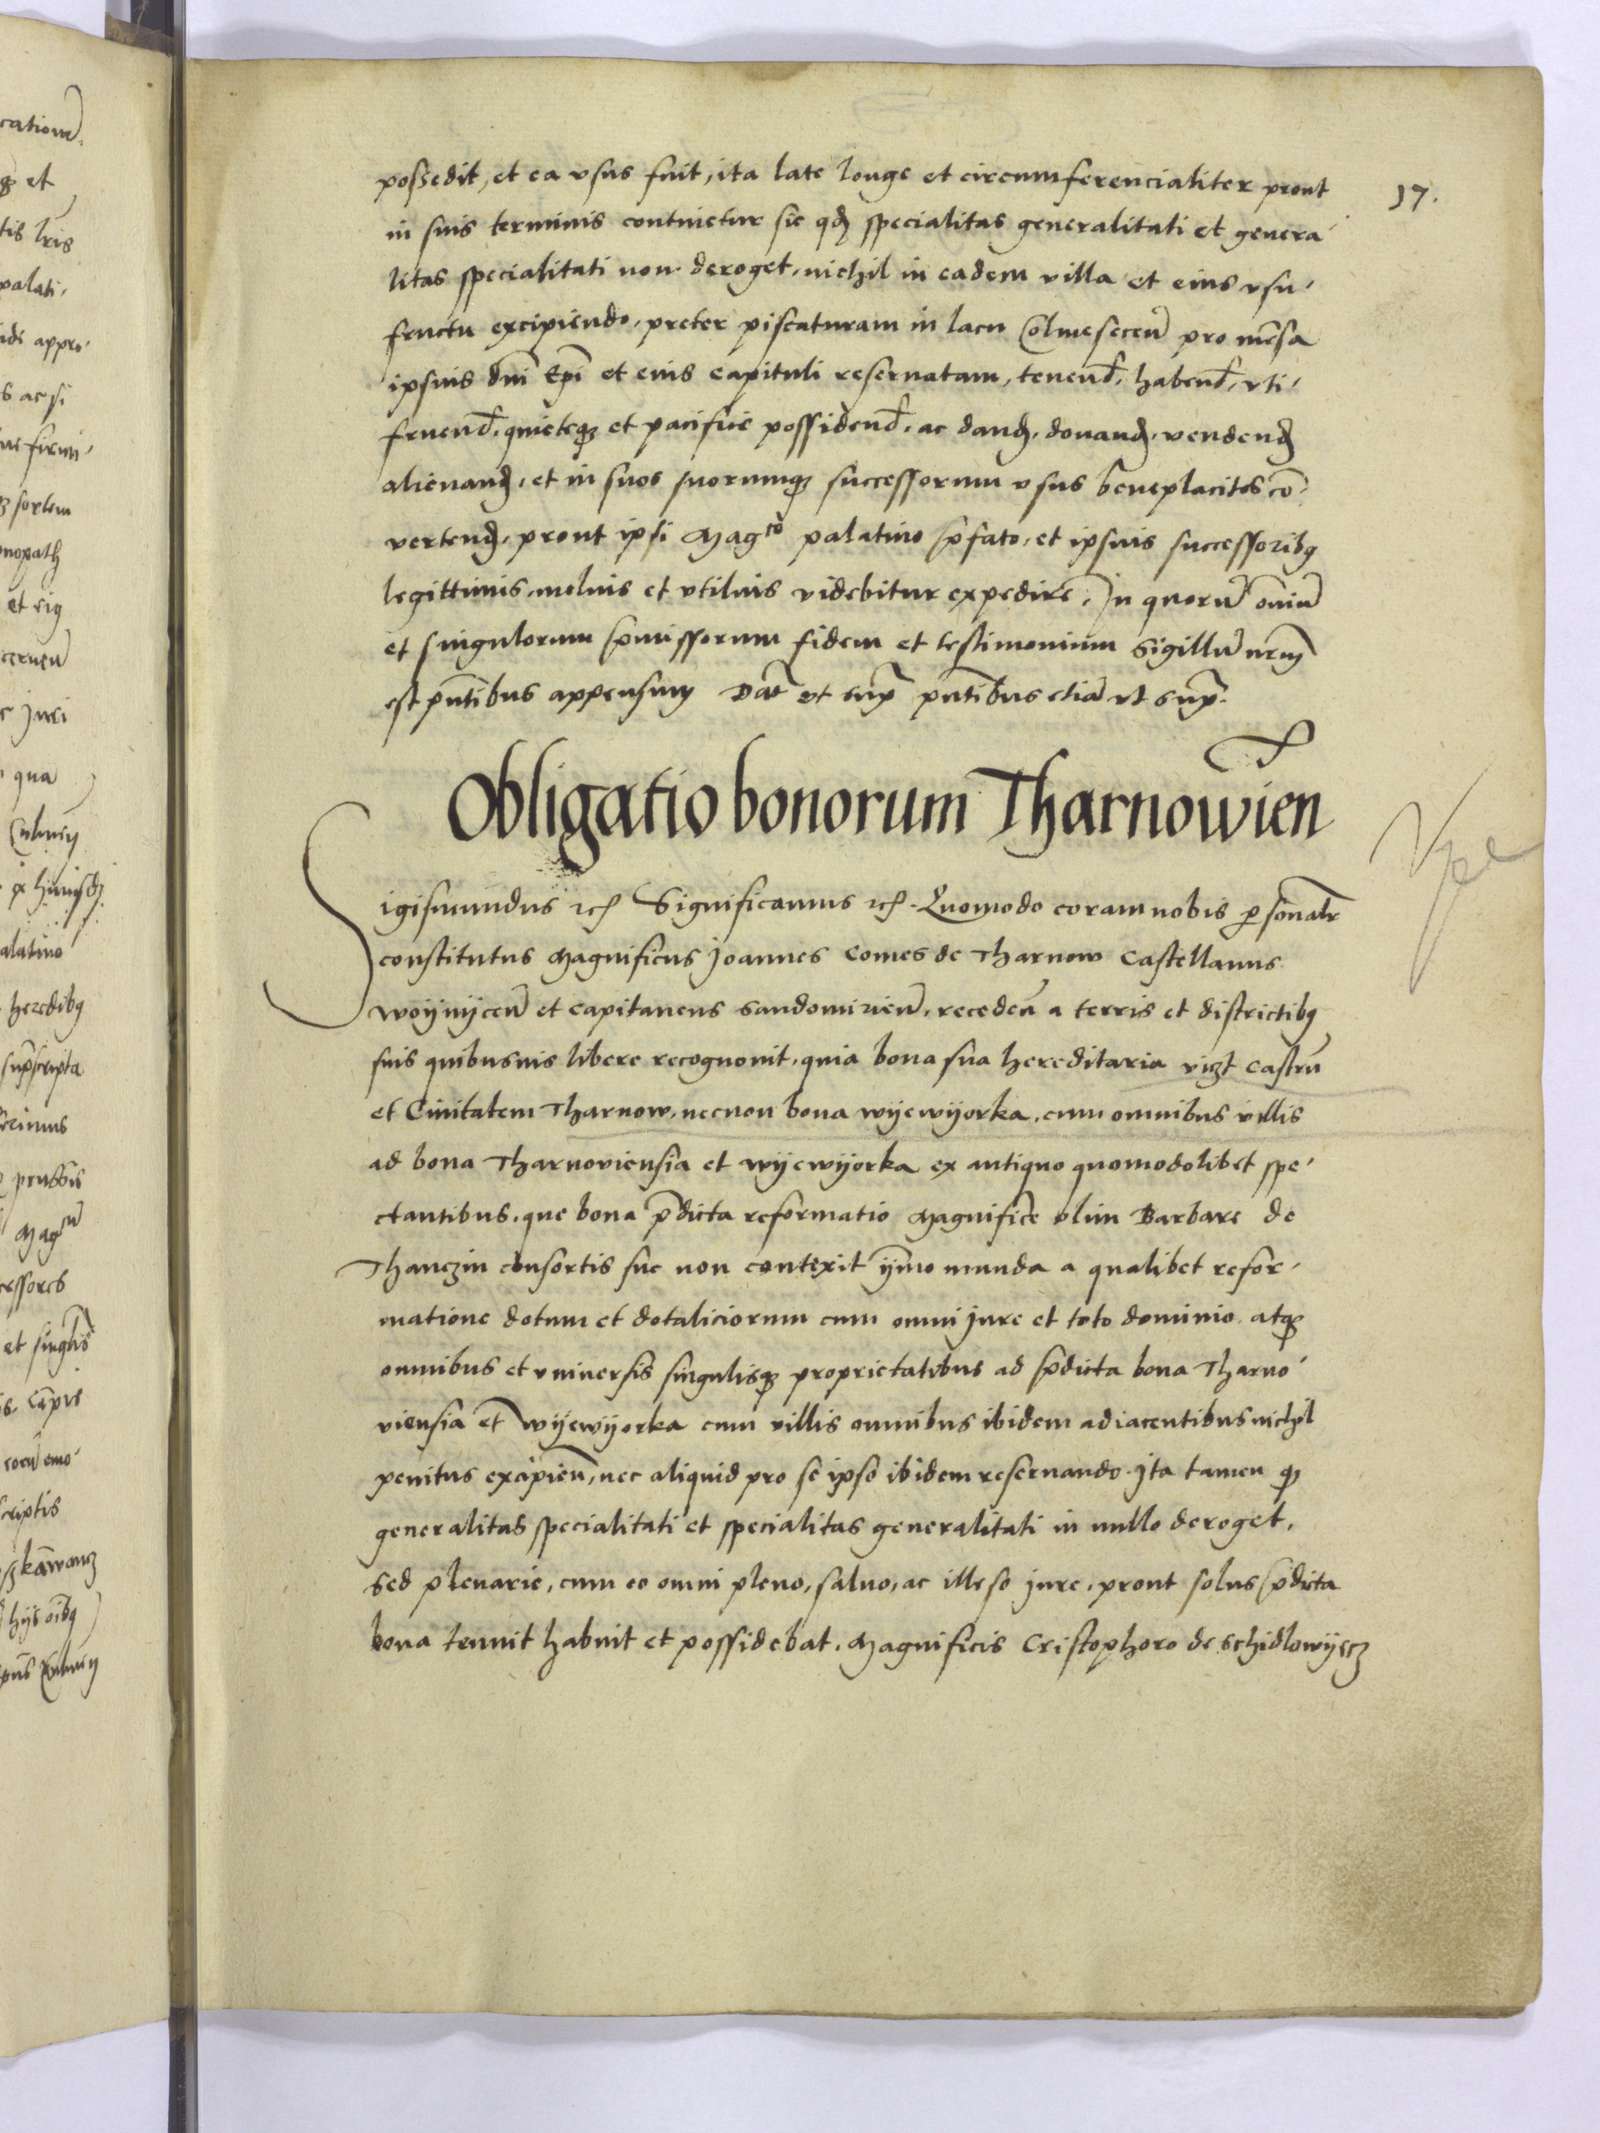 possedit, et ea vsus fuit, ita late longe et circumferencialiter prout
17.
in suis terminis continetur sic qđ specialitas generalitati et genera
litas specialitati non deroget, nichil in eadem villa et eius vsu
fructu excipiendo, preter piscaturam in lacu Colmesecen̄ pro mēsa
ipsius dn̄i Ep̄i et eius capituli reseruatam, tenend̄, habend̄, vti
fruend̄, quieteqꝫ et pacifice possidend̄, ac dand̄, donand̄, vendend̄
alienand̄, et in suos suorumqꝫ successorum vsus bēneplacitos cō
vertend̄, prout ipsi Magco palatino p̄fato, et ipsius successoribꝫ
legittimis, melius et vtilius videbitur expedire, In quorū om̄iū
et singulorum p̄missorum fidem et testimonium Sigillū nr̄m
est pn̄tibus appensum Dat̄ et sup̄ pn̄tibus etiā vt sup̄.
Obligatio bonorum Tharnowien̄
Sigismundus ꝛcꝭ Significamus ꝛcꝭ. Quomodo coram nobis personalr̄
constitutus Magnificus Joannes Comes de Tharnow Castellanus
Woynycen̄ et Capitaneus Sandomirien̄, receden̄ a terris et districtibꝫ
suis quibusuis libere recognouit, quia bona sua hereditaria vizt Castrū
et Ciuitatem Tharnow, necnon bona Wyewyorka, cum omnibus villis
ad bona Tharnoviensia et Wyewyorka ex antiquo quomodolibet spe
ctantibus, que bona p̄dicta reformatio Magnifice olim Barbare de
Thanczin consortis sue non contexit ym̄o munda a qualibet refor
matione dotum et dotaliciorum cum omni jure et toto dominio atqꝫ
omnibus et vniuersis singulisqꝫ proprietatibus ad p̄dicta bona Tharno
viensia et Wyewyorka cum villis omnibus ibidem adiacentibus nichil
penitus excipien̄, nec aliquid pro se ipso ibidem reseruando. Ita tamen qꝫ
generalitas specialitati et specialitas generalitati in nullo deroget,
Sed plenarie, cum eo omni pleno, saluo, ac illeso jure, prout solus p̄dicta
bona tenuit habuit et possidebat, Magnificis Cristophoro de Schidlowyecz